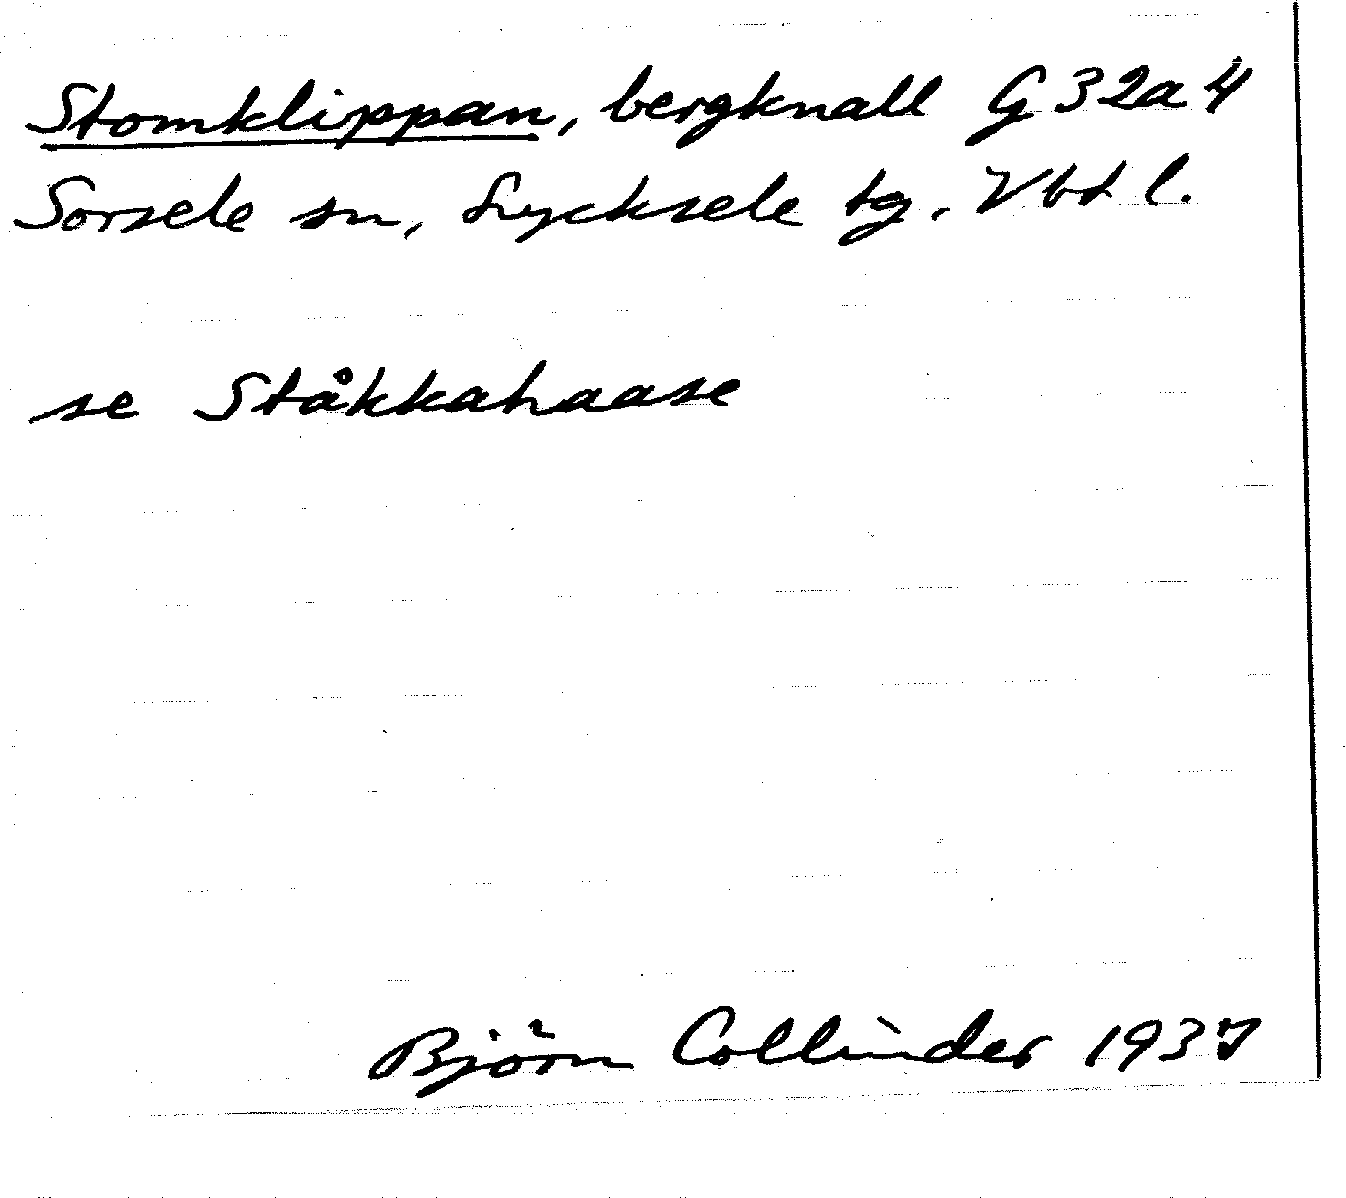 Stomklippan, bergknall G 32a 4
Sorsele sn, Lycksele tg. Vbtl.
se Ståkkahaase
Björn Collinder 1937